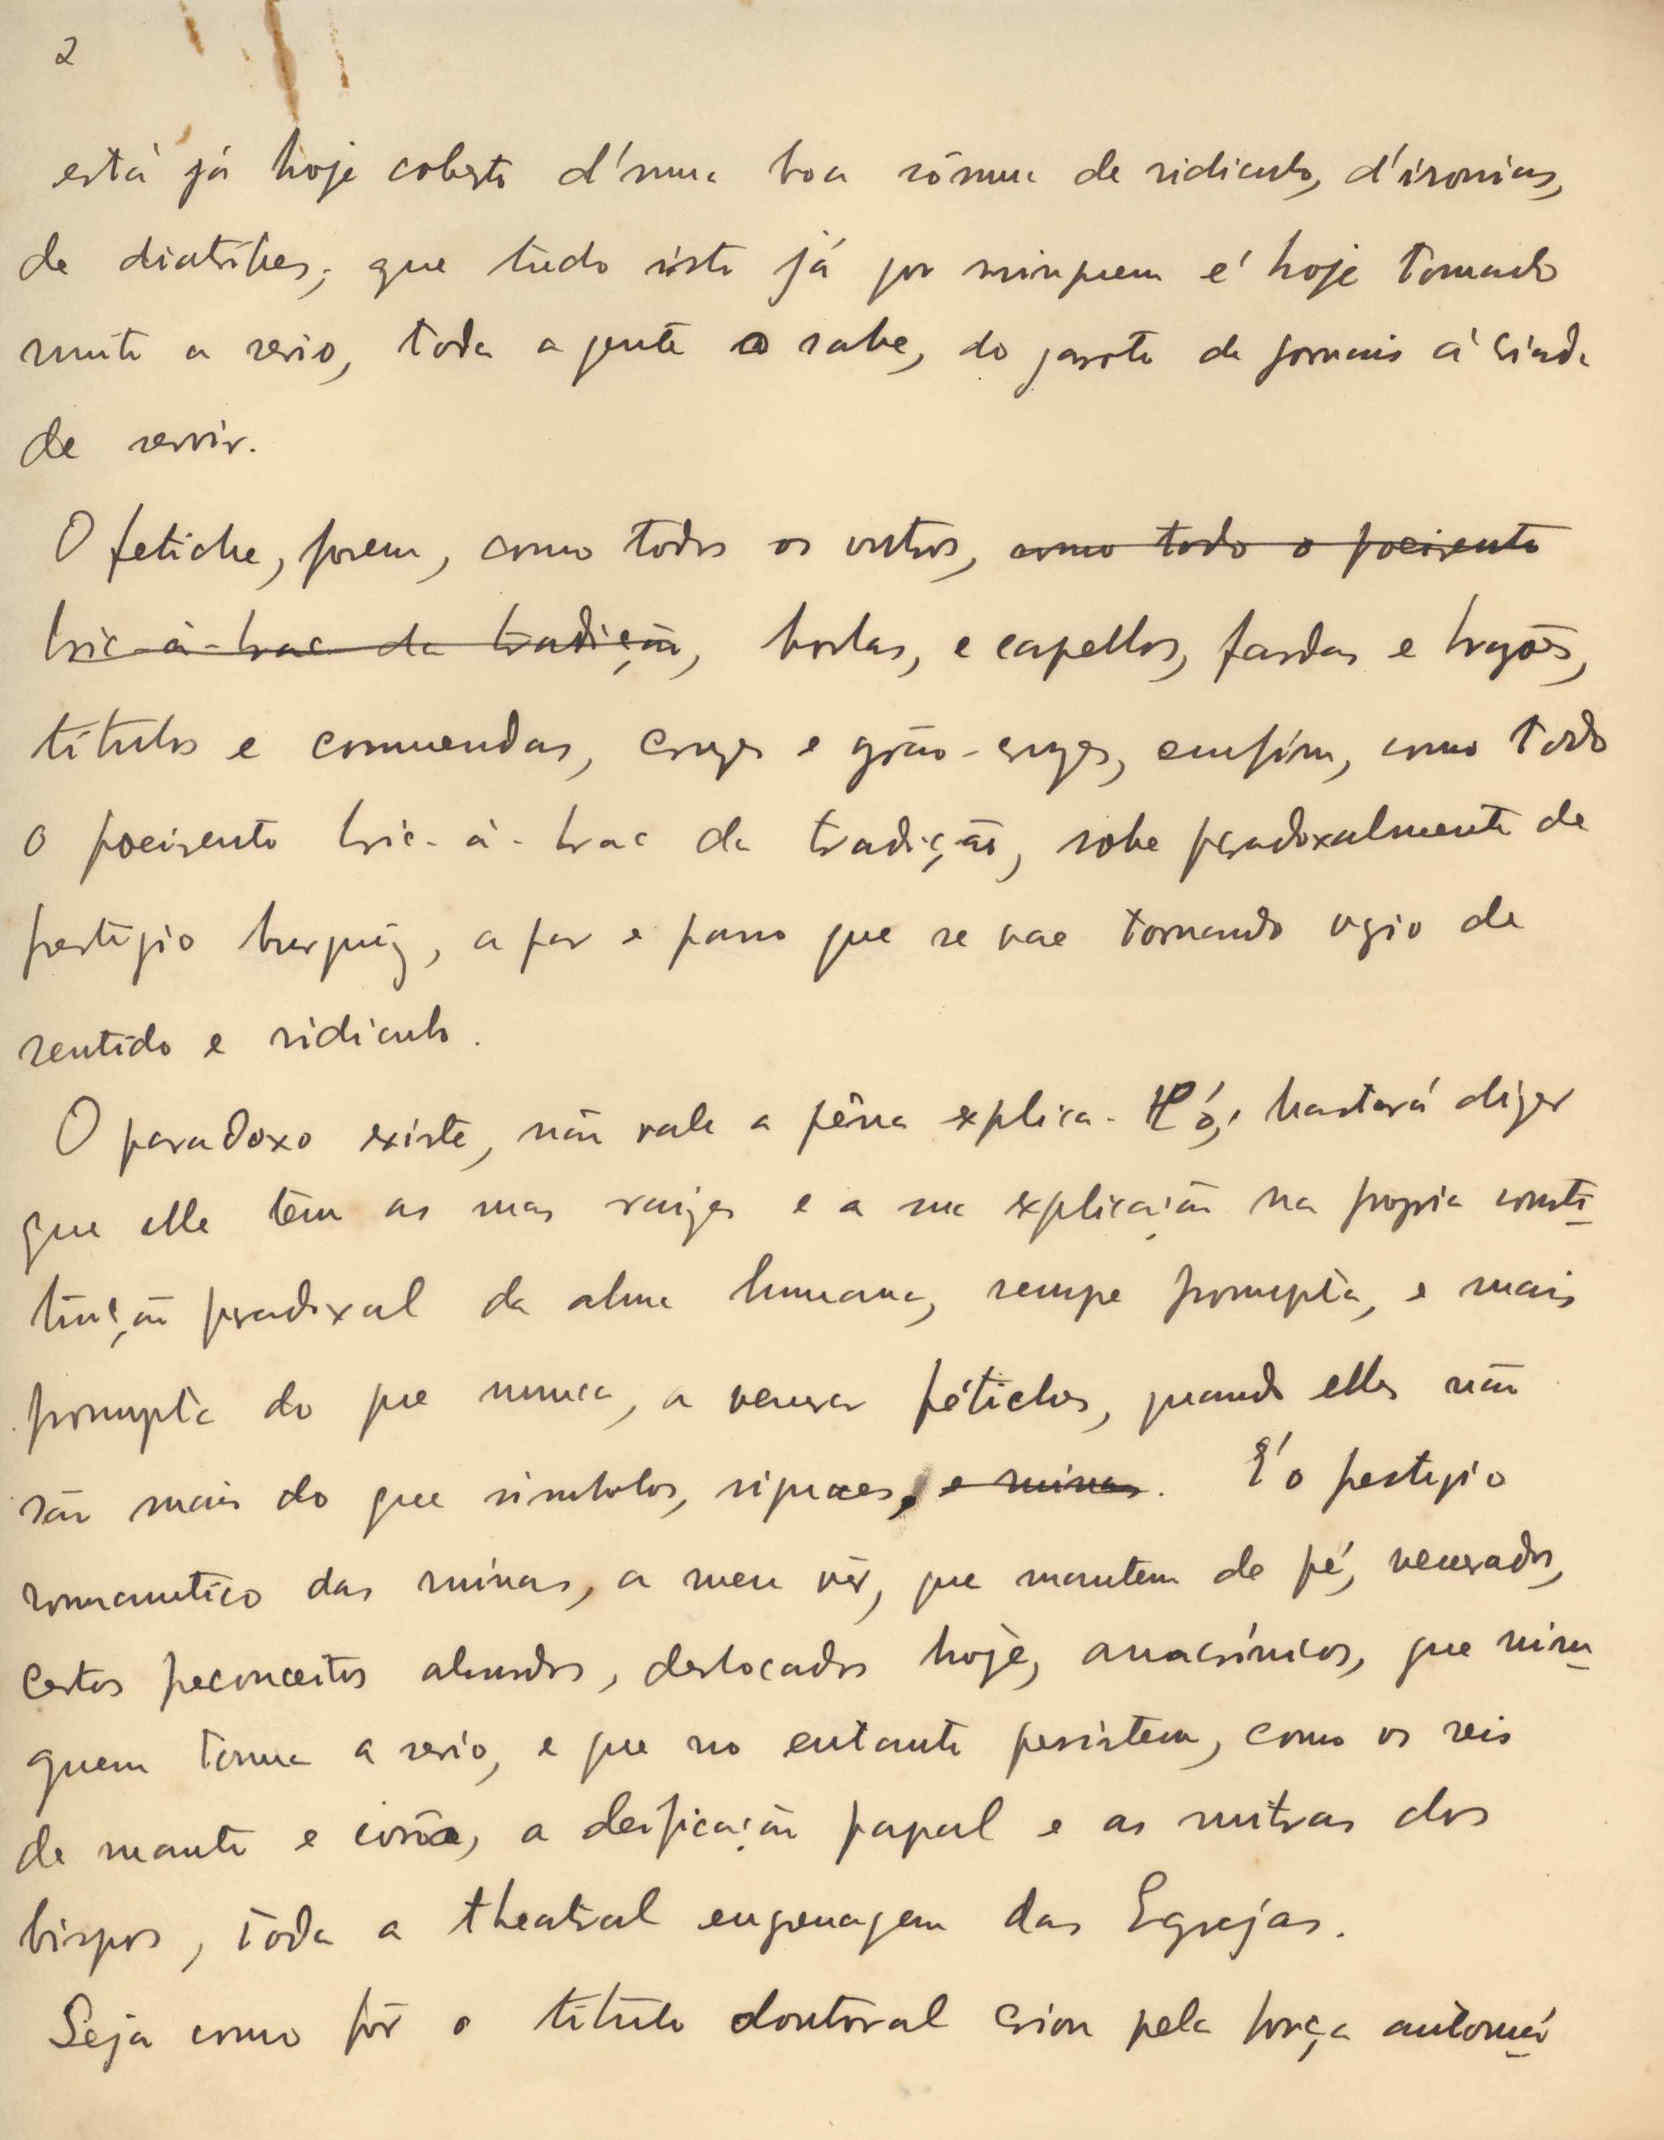 2
está já hoje coberto d'uma boa sômma de ridiculo, d'ironias,
de diatribes; que tudo isto já por ninguem é hoje tomado
muito a serio, toda a gente o sabe, do garoto de jornais á criada
de servir.
O fetiche, porem, como todos os outros, como todo o poeirento
bric-à-brac da tradição, borlas, e capellos, fardas e brazões,
titulos e commendas, cruzes e grão-cruzes, emfim, como todo
o poeirento bric-à-brac da tradição, sobe paradoxalmente de
prestigio burguêz, a par e passo que se vae tornando vazio de
sentido e ridiculo.
O paradoxo existe, não vale a pêna explica-lo; bastará dizer
que elle têm as suas raizes e a sua explicação na propria consti-
tuição paradoxal da alma humana, sempre prompta, e mais
prompta do que nunca, a venerar fétiches, quando elles não
são mais do que simbolos, signaes, e ruinas. É o prestigio
romantico das ruinas, a meu vêr, que mantem de pé, venerados,
certos preconceitos absurdos, deslocados hoje, anacrónicos, que nin-
guem toma a serio, e que no entanto persistem, como os reis
de manto e corôa, a deificação papal e as mitras dos
bispos, toda a theatral engrenagem das Egrejas.
Seja como fôr o titulo doutoral criou pela força automá-